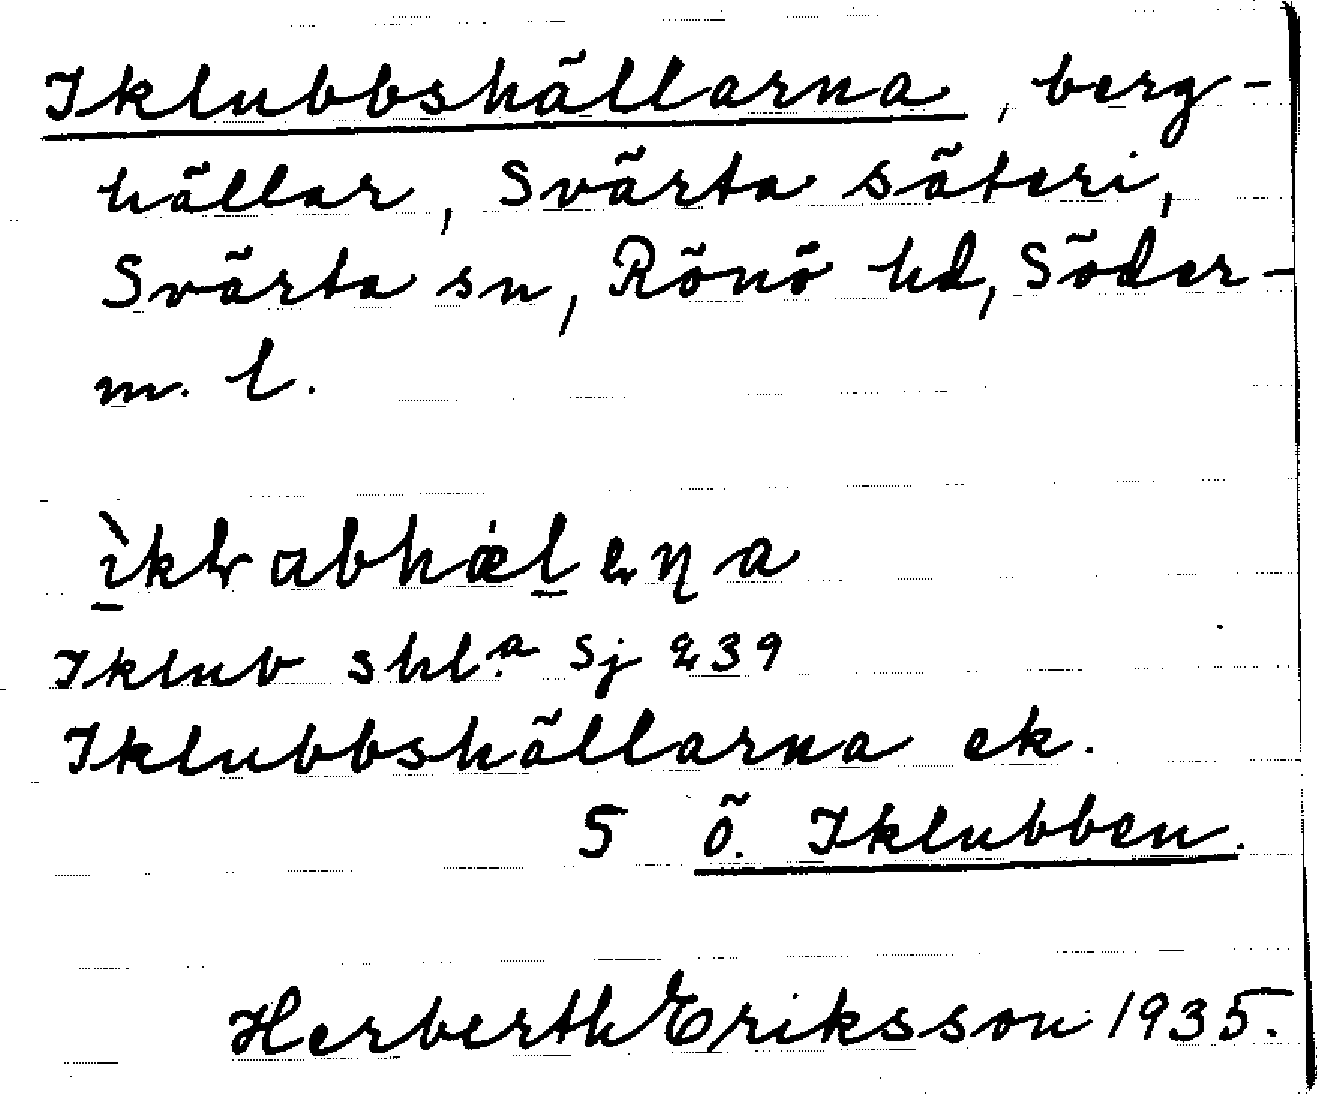 Iklubbshällarna, berg-
hällar, Svärta säteri,
Svärta sn, Rönö hd, Söder-
m. l.
Iklub shl.a Sj 239
Iklubbshällarna ek.
5 Ö. Iklubben.
Herberth Eriksson 1935.